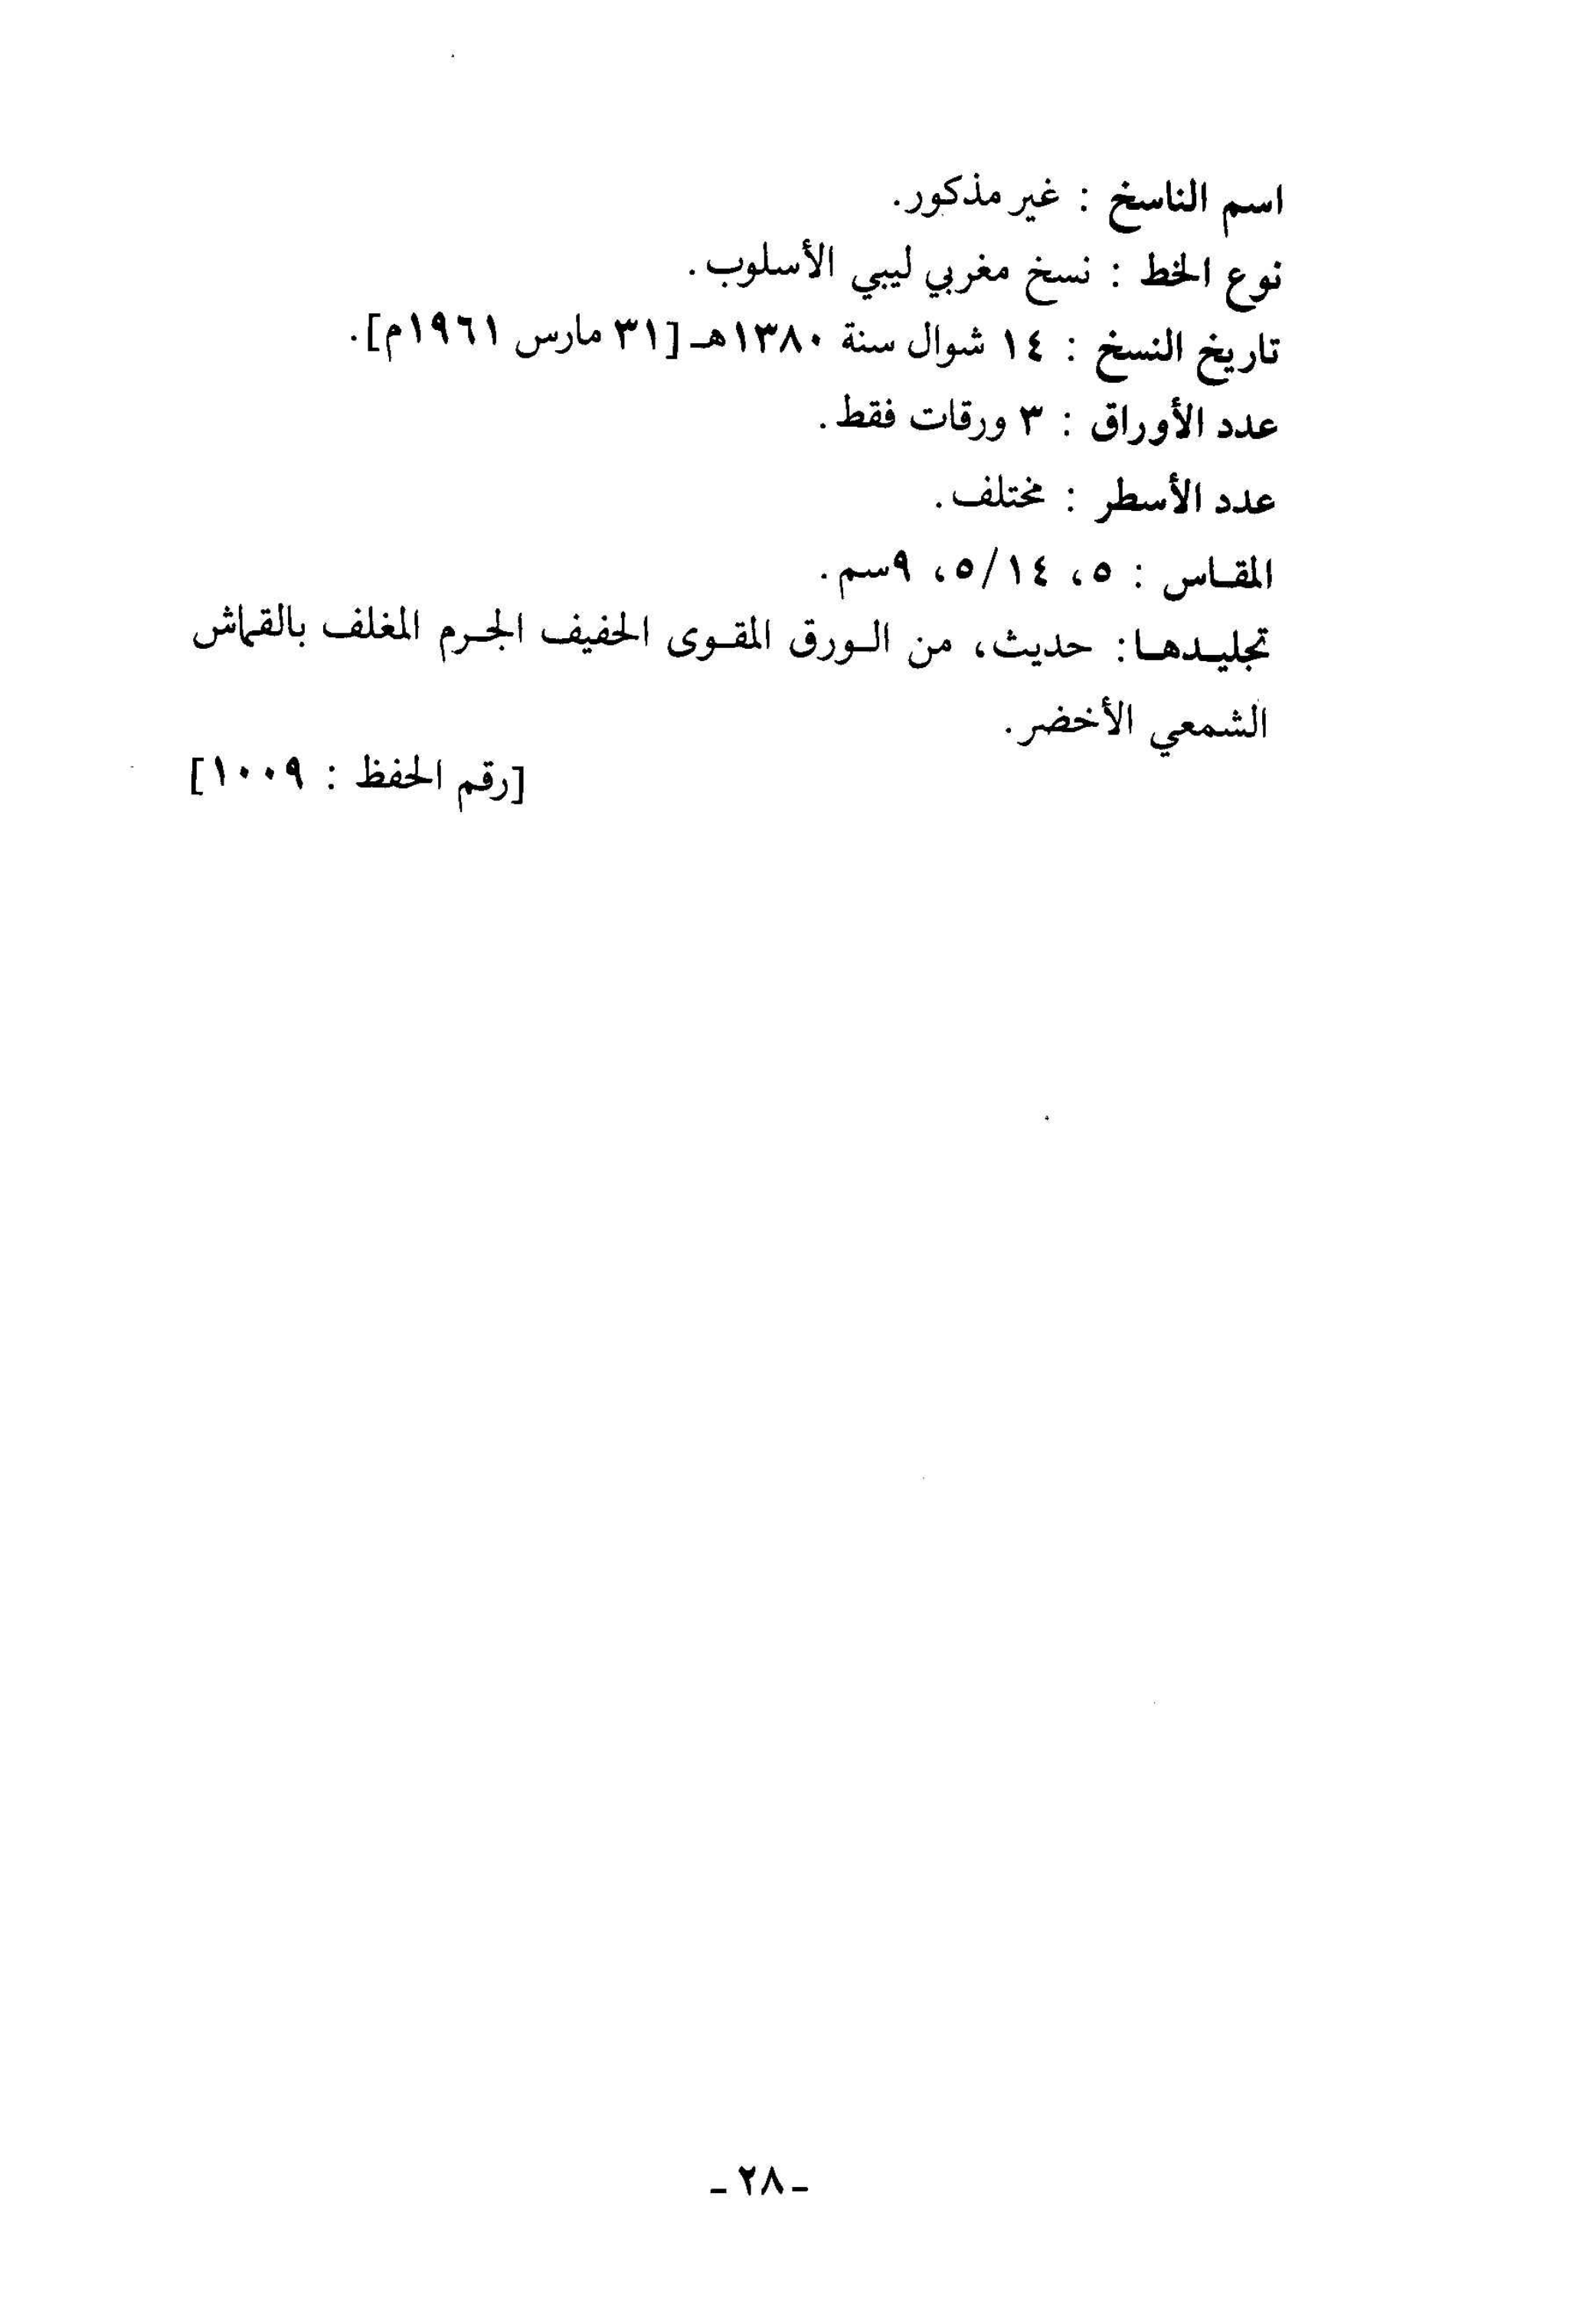 اسم الناسخ : غير مذكور.
نوع الخط : نسخ مغربي ليبي الأسلوب.
تاريخ النسخ : ١٤ شوال سنة ١٣٨٠هـ [٣١ مارس ١٩٦١م].
عدد الأوراق : ٣ ورقات فقط.
عدد الأسطر : مختلف.
المقـاس : ٥، ١٤/٥، ٩سم.
تجليـدهـا: حديث، من الـورق المقـوى الخفيف الجـرم المغلف بالقماش
الشمعي الأخضر.
[رقم الحفظ : ١٠٠٩]
- ٢٨ -